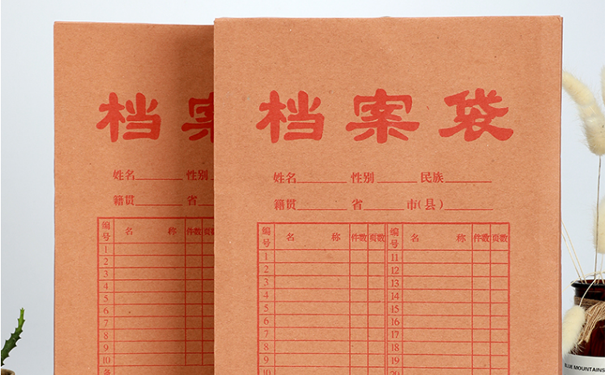 档案
姓名______ 性别
籍贯______ 省
编号 名 称 件数 页数
1
2
3
4
5
6
7
8
9
10
档案袋
姓名______ 性别______ 民族______
籍贯______ 省______ 市(县)______
编号 名 称 件数 页数 编号 名 称 件数 页数
1 11
2 12
3 13
4 14
5 15
6 16
7 17
8 18
9 19
10 20
BLUE MOUNTAINS